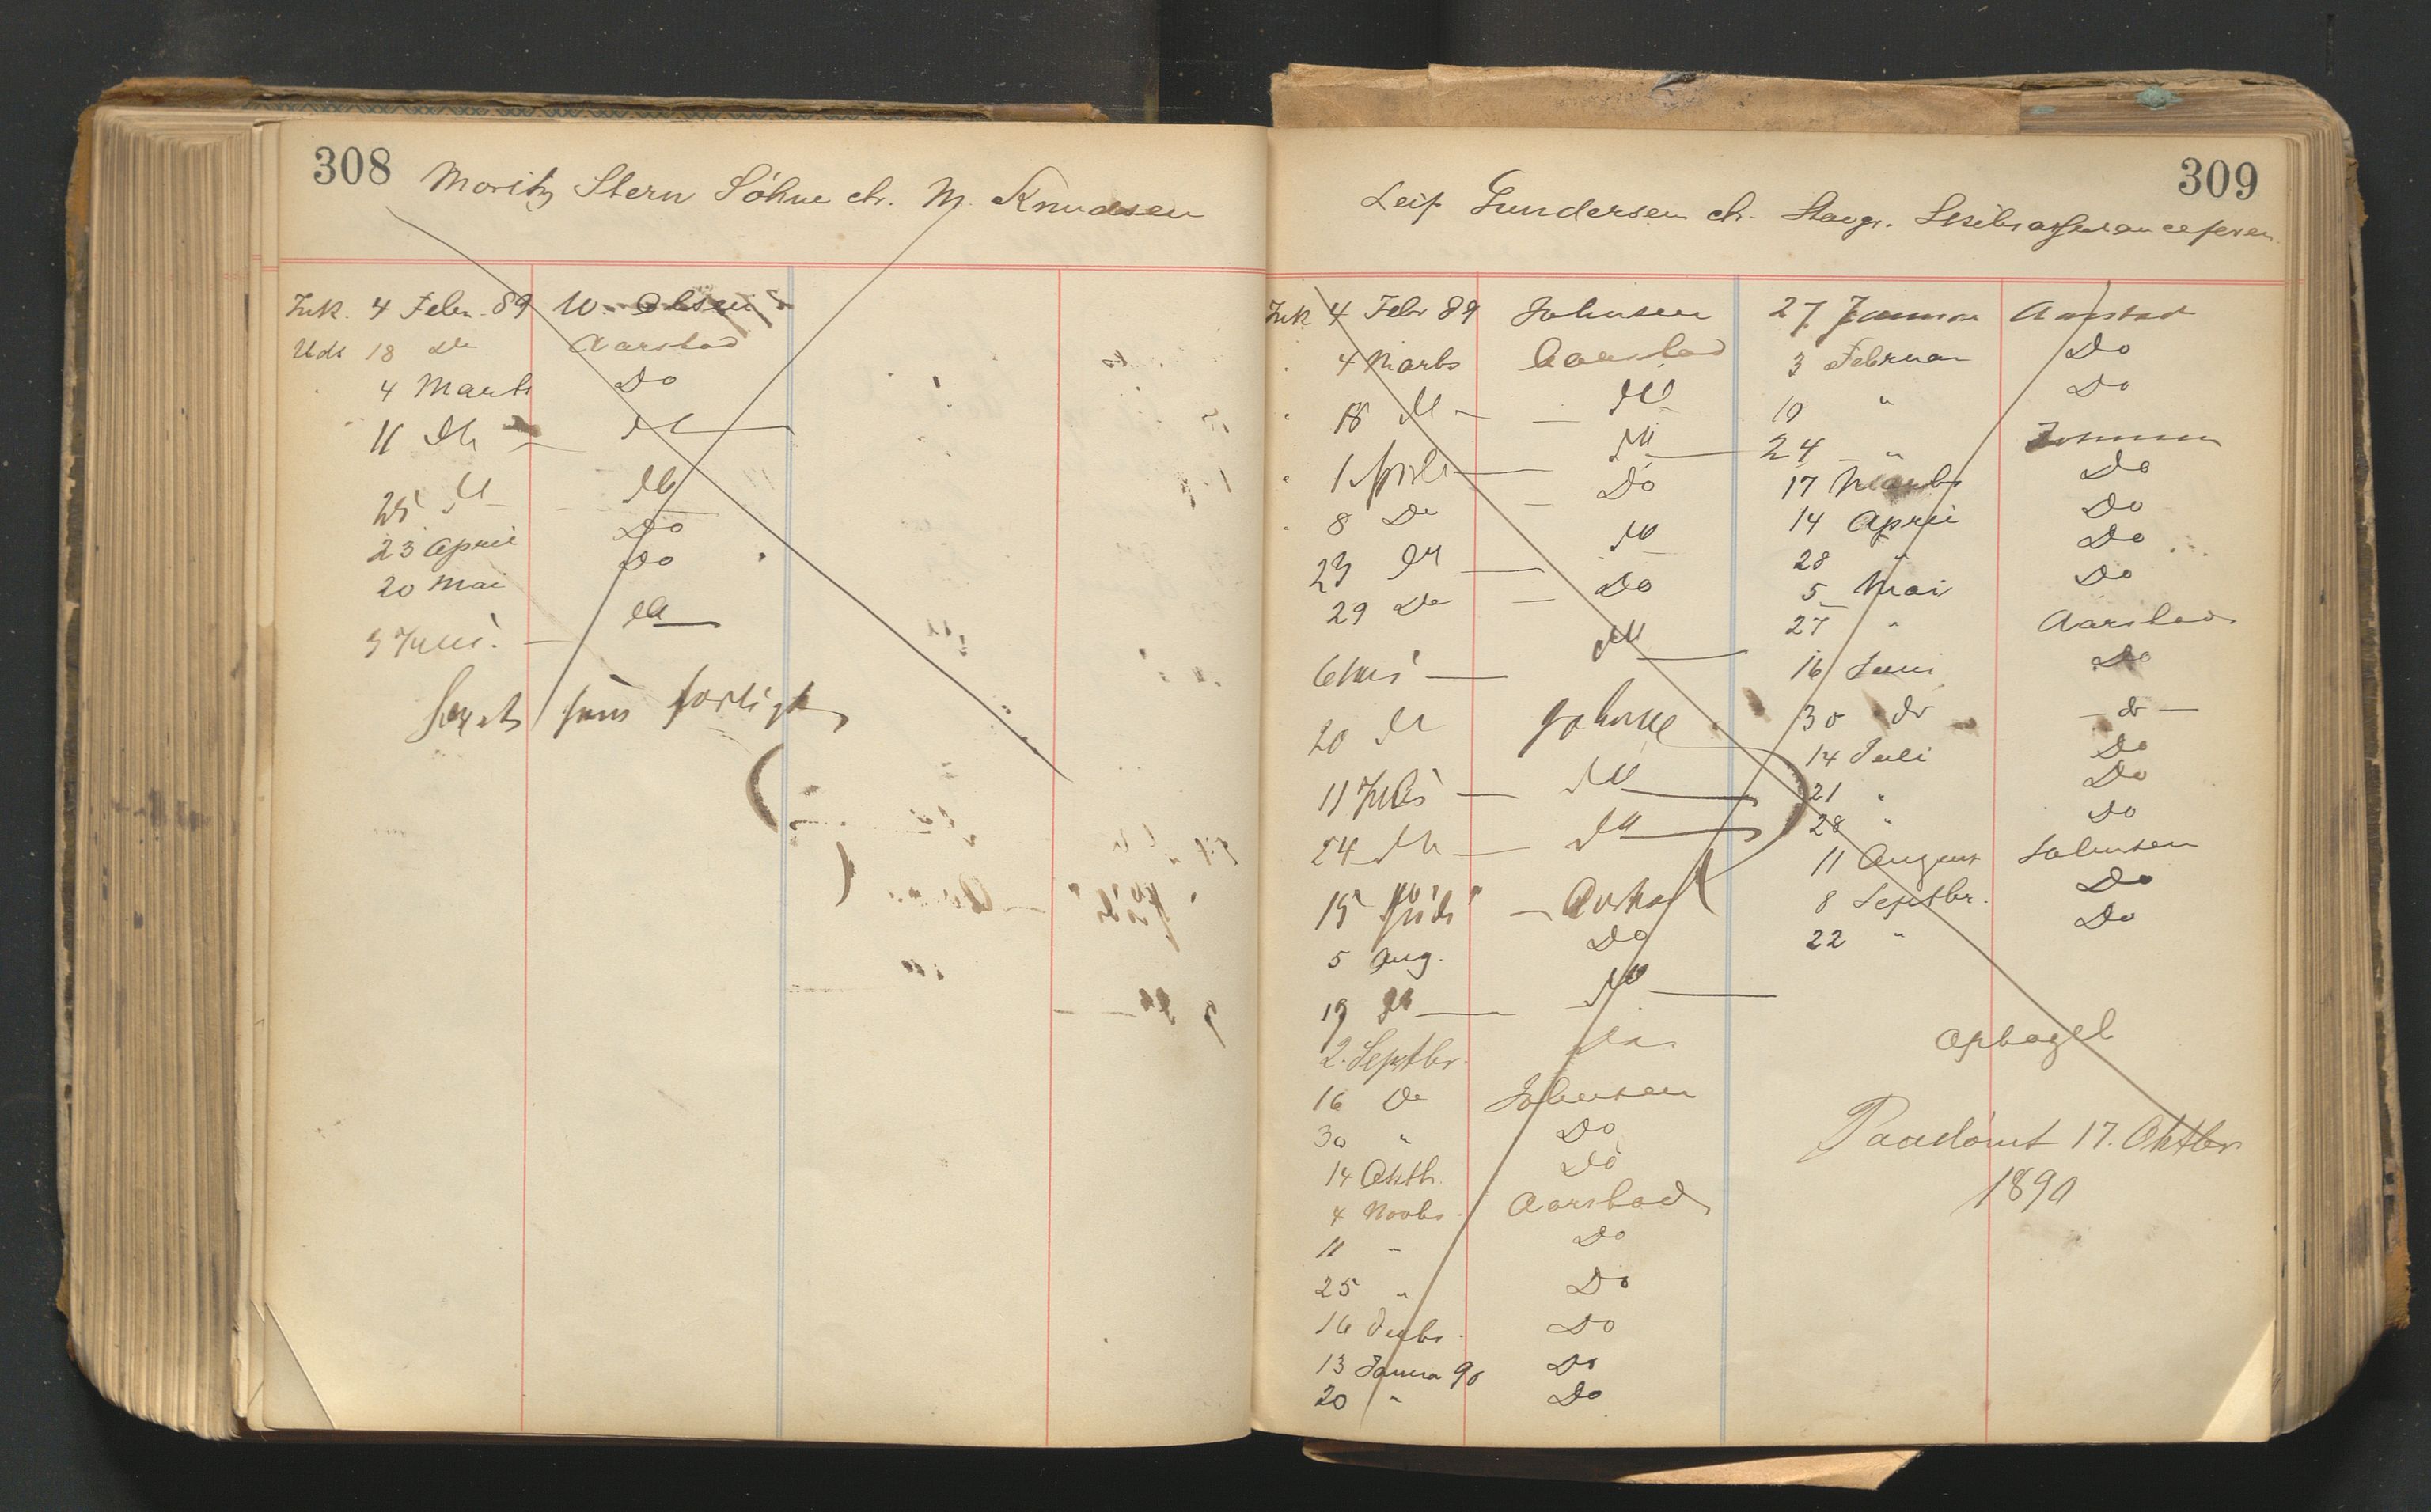 308
Moritz Stern Söhne ctr. M. Knudsen
Ink. 4 Febr. 89 W. Olsen
Uds 18 Do Aarstad
4 Marts Do
11 Do Do
25 Do Do
23 April Do
20 Mai Do
3 Juni. Do
som forligt
309
Leif Gundersen ctr. Stavgr. Skibsassuranceforen.
Ink 4 Febr 89 Johnsen
4 Marts Aarstad
18 Do Do
1 April Do
8 Do Do
23 Do Do
29 Do Do
6 Mai Do
20 Do Johnsen
11 Juni Do
24 Do Do
15 Juli Aarstad
5 Aug. Do
19 Do Do
2. Septbr. Do
16 Do Johnsen
30 " Do
14 Oktb. Do
4 Novbr. Aarstad
11 " Do
25 " Do
16 Decbr. Do
13 Janua 90 Do
20 " Do
27 Januar Aarstad
3 Februar Do
10 " Do
24 " Johnsen
17 Marts Do
14 April Do
28 " Do
5 Mai Do
27 " Aarstad
16 Juni Do
30 do do
14 Juli Do
21 " Do
28 " Do
11 August Johnsen
8 Septbr. Do
22 " Do
Optaget
Paadömt 17. Oktbr
1890